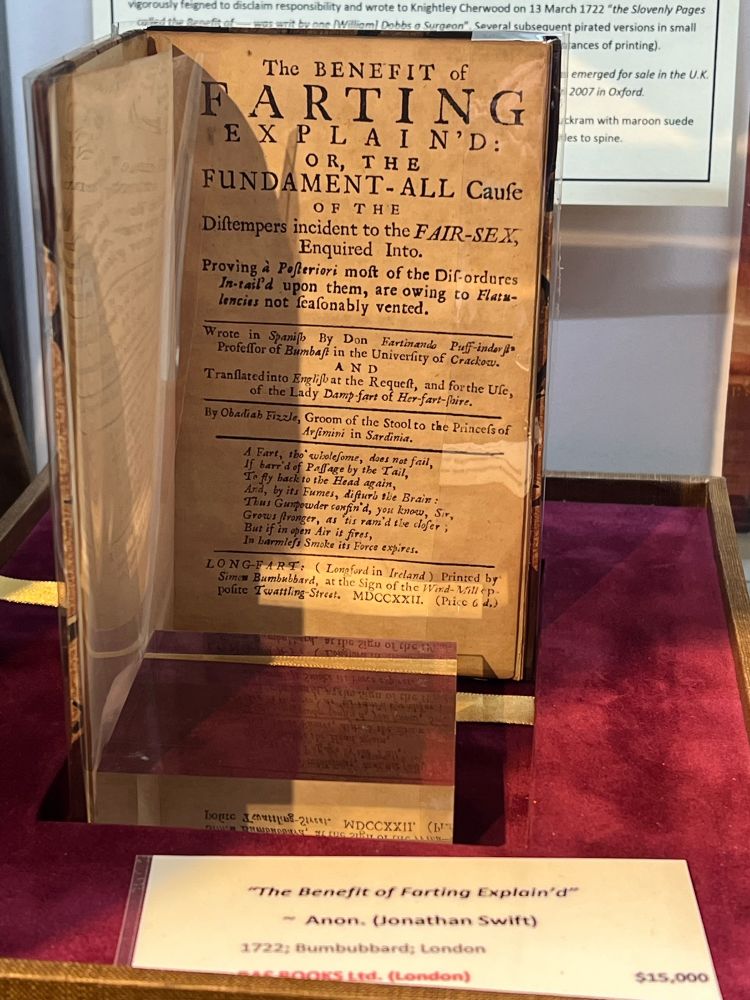 vigorously feigned to disclaim responsibility and wrote to Knightley Cherwood on 13 March 1722 "the Slovenly Pages
called the Benefit of — was writ by one [William] Dobbs a Surgeon". Several subsequent pirated versions in small
ances of printing).
emerged for sale in the U.K.
2007 in Oxford.
ckram with maroon suede
les to spine.
The BENEFIT of
FARTING
EXPLAIN'D:
OR, THE
FUNDAMENT-ALL Cauſe
OF THE
Diſtempers incident to the FAIR-SEX,
Enquired Into.
Proving à Poſteriori moſt of the Diſ-ordures
In-tail'd upon them, are owing to Flatu-
lencies not ſeaſonably vented.
Wrote in Spaniſh By Don Fartinando Puff-indorſt
Profeſſor of Bumbaſt in the Univerſity of Crackow.
AND
Tranſlated into Engliſh at the Requeſt, and for the Uſe,
of the Lady Damp-fart of Her-fart-ſhire.
By Obadiah Fizzle, Groom of the Stool to the Princeſs of
Arſimini in Sardinia.
A Fart, tho' wholeſome, does not fail,
If barr'd of Paſſage by the Tail,
To fly back to the Head again,
And, by its Fumes, diſturb the Brain:
Thus Gunpowder confin'd, you know, Sir,
Grows ſtronger, as 'tis ram'd the cloſer;
But if in open Air it fires,
In harmleſs Smoke its Force expires.
LONG-FART: (Longford in Ireland) Printed by
Simon Bumbubbard, at the Sign of the Wind-Mill op-
poſite Twattling-Street. MDCCXXII. (Price 6 d.)
"The Benefit of Farting Explain'd"
~ Anon. (Jonathan Swift)
1722; Bumbubbard; London
BOOKS Ltd. (London) $15,000